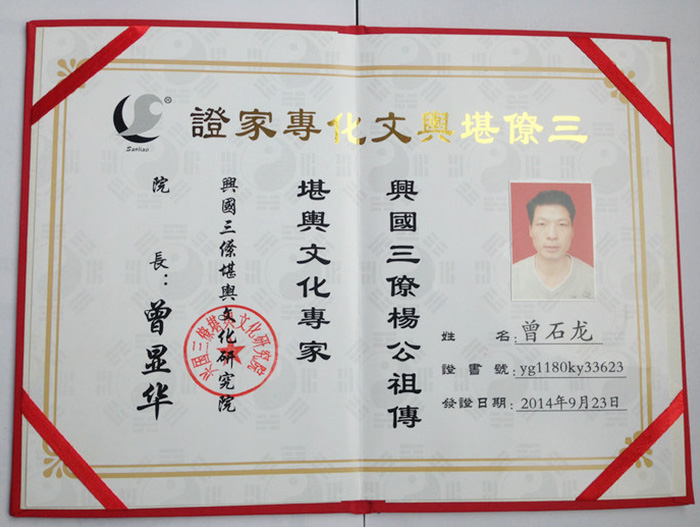 三僚堪輿文化專家證
®
Sanliao
興國三僚楊公祖傳
堪輿文化專家
興國三僚堪輿文化研究院
院長：曾显华
兴国三僚堪舆文化研究院
姓名：曾石龙
證書號：yg1180ky33623
發證日期：2014年9月23日